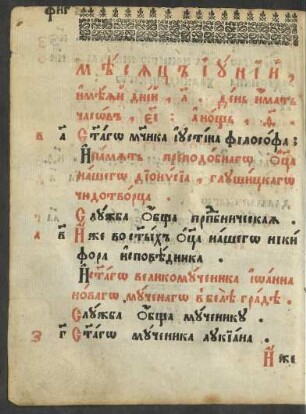 фиг
мѣсяцъ іуній,
имѣяй дній, л҃. день имать
часовъ, еі҃: а нощь, ѳ҃.
в а҃ Ст҃агѡ мч҃ника іустіна философа:
И память прпⷣобнагѡ оц҃а
нашегѡ діонисіа, глушицкагѡ
чюдотворца.
Служба общая прпⷣбническая.
г а в҃ Иже во ст҃ыхъ оц҃а нашегѡ ники
фора исповѣдника.
И ст҃агѡ великомученика іѡанна
новагѡ, мученагѡ в белѣ градѣ.
Служба общая мученику.
з г҃ Ст҃агѡ мученика лукіана.
И же